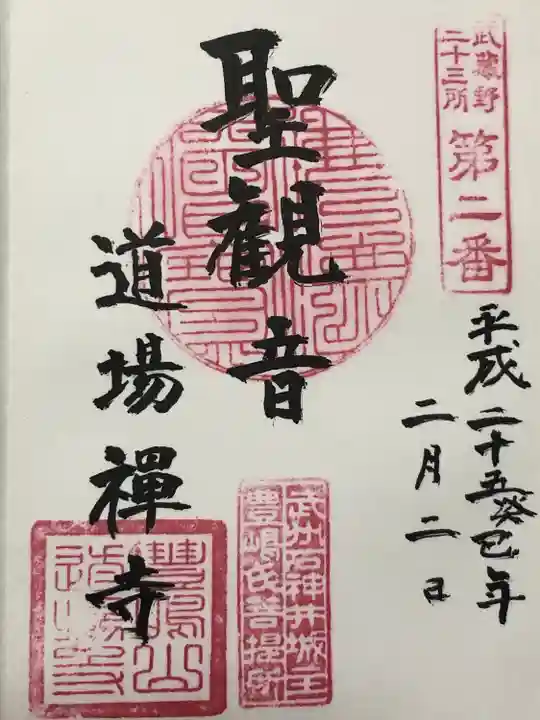 武蔵野
二十三所
第二番
平成二十五癸巳年
二月二日
聖観音
道場禅寺
武州石神井城主
豊嶋氏菩提所
豊嶋山